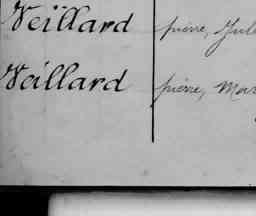 Veillard pierre, Jule
Veillard pierre, Mar